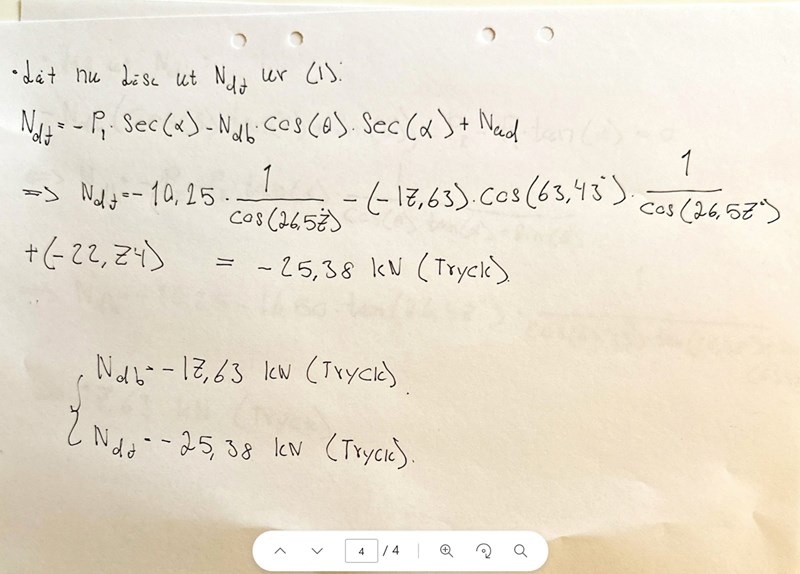 · Låt nu läsa ut Ndf ur (1):
Ndf = -P₁ · Sec(α) - Ndb · cos(θ) · Sec(α) + Nad
=> Ndf = -10,25 · 1/cos(26,57°) - (-17,63) · cos(63,43°) · 1/cos(26,57°)
+ (-22,74) = -25,38 kN (Tryck).
Ndb = -17,63 kN (Tryck).
Ndf = -25,38 kN (Tryck).
4 / 4